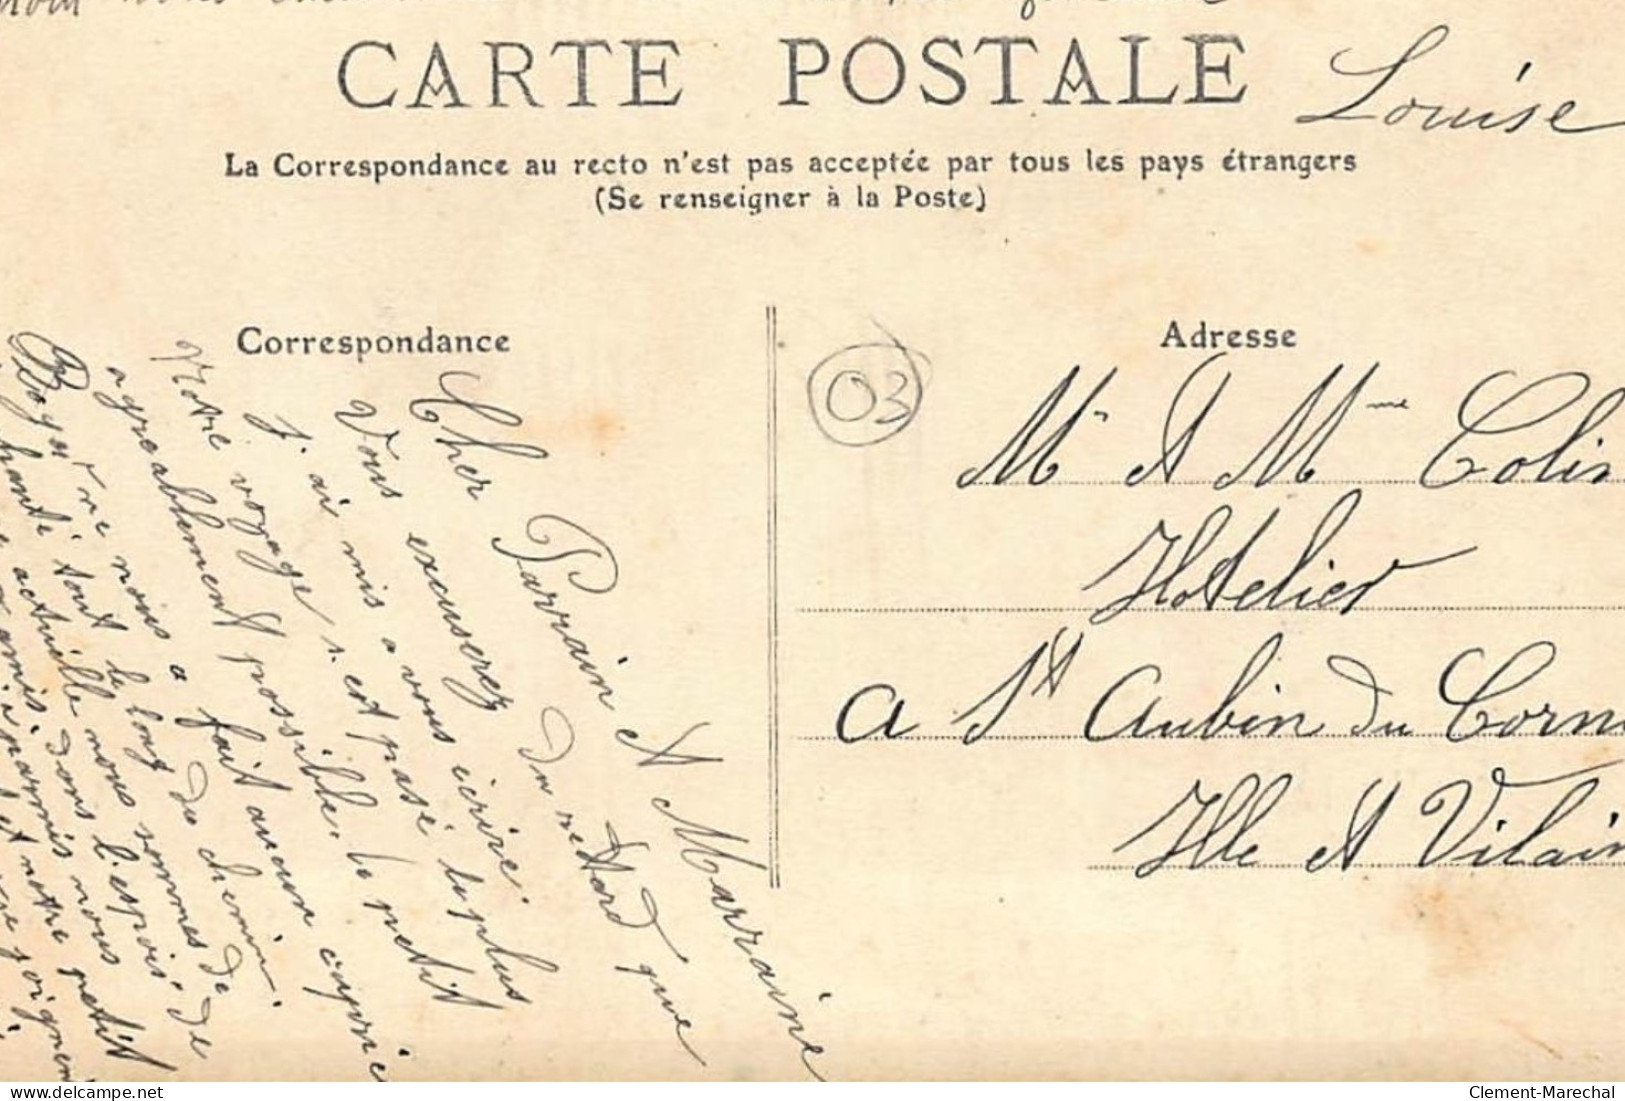 CARTE POSTALE
Louise
La Correspondance au recto n'est pas acceptée par tous les pays étrangers
(Se renseigner à la Poste)
Correspondance
Cher Parrain et Marraine
Vous excuserez du retard que
j'ai mis a vous ecrire.
Notre voyage s'est passé le plus
agreablement possible. le petit
Roger ne nous a fait aucun
chanté tout le long du chemin.
actuelle nous sommes de
dans l'espoir de
parmis nous
et notre petit
03
Adresse
Mr et Mme Colin
Hotelier
a St Aubin du Corm
Ille et Vilain
delcampe.net
Clement-Marechal